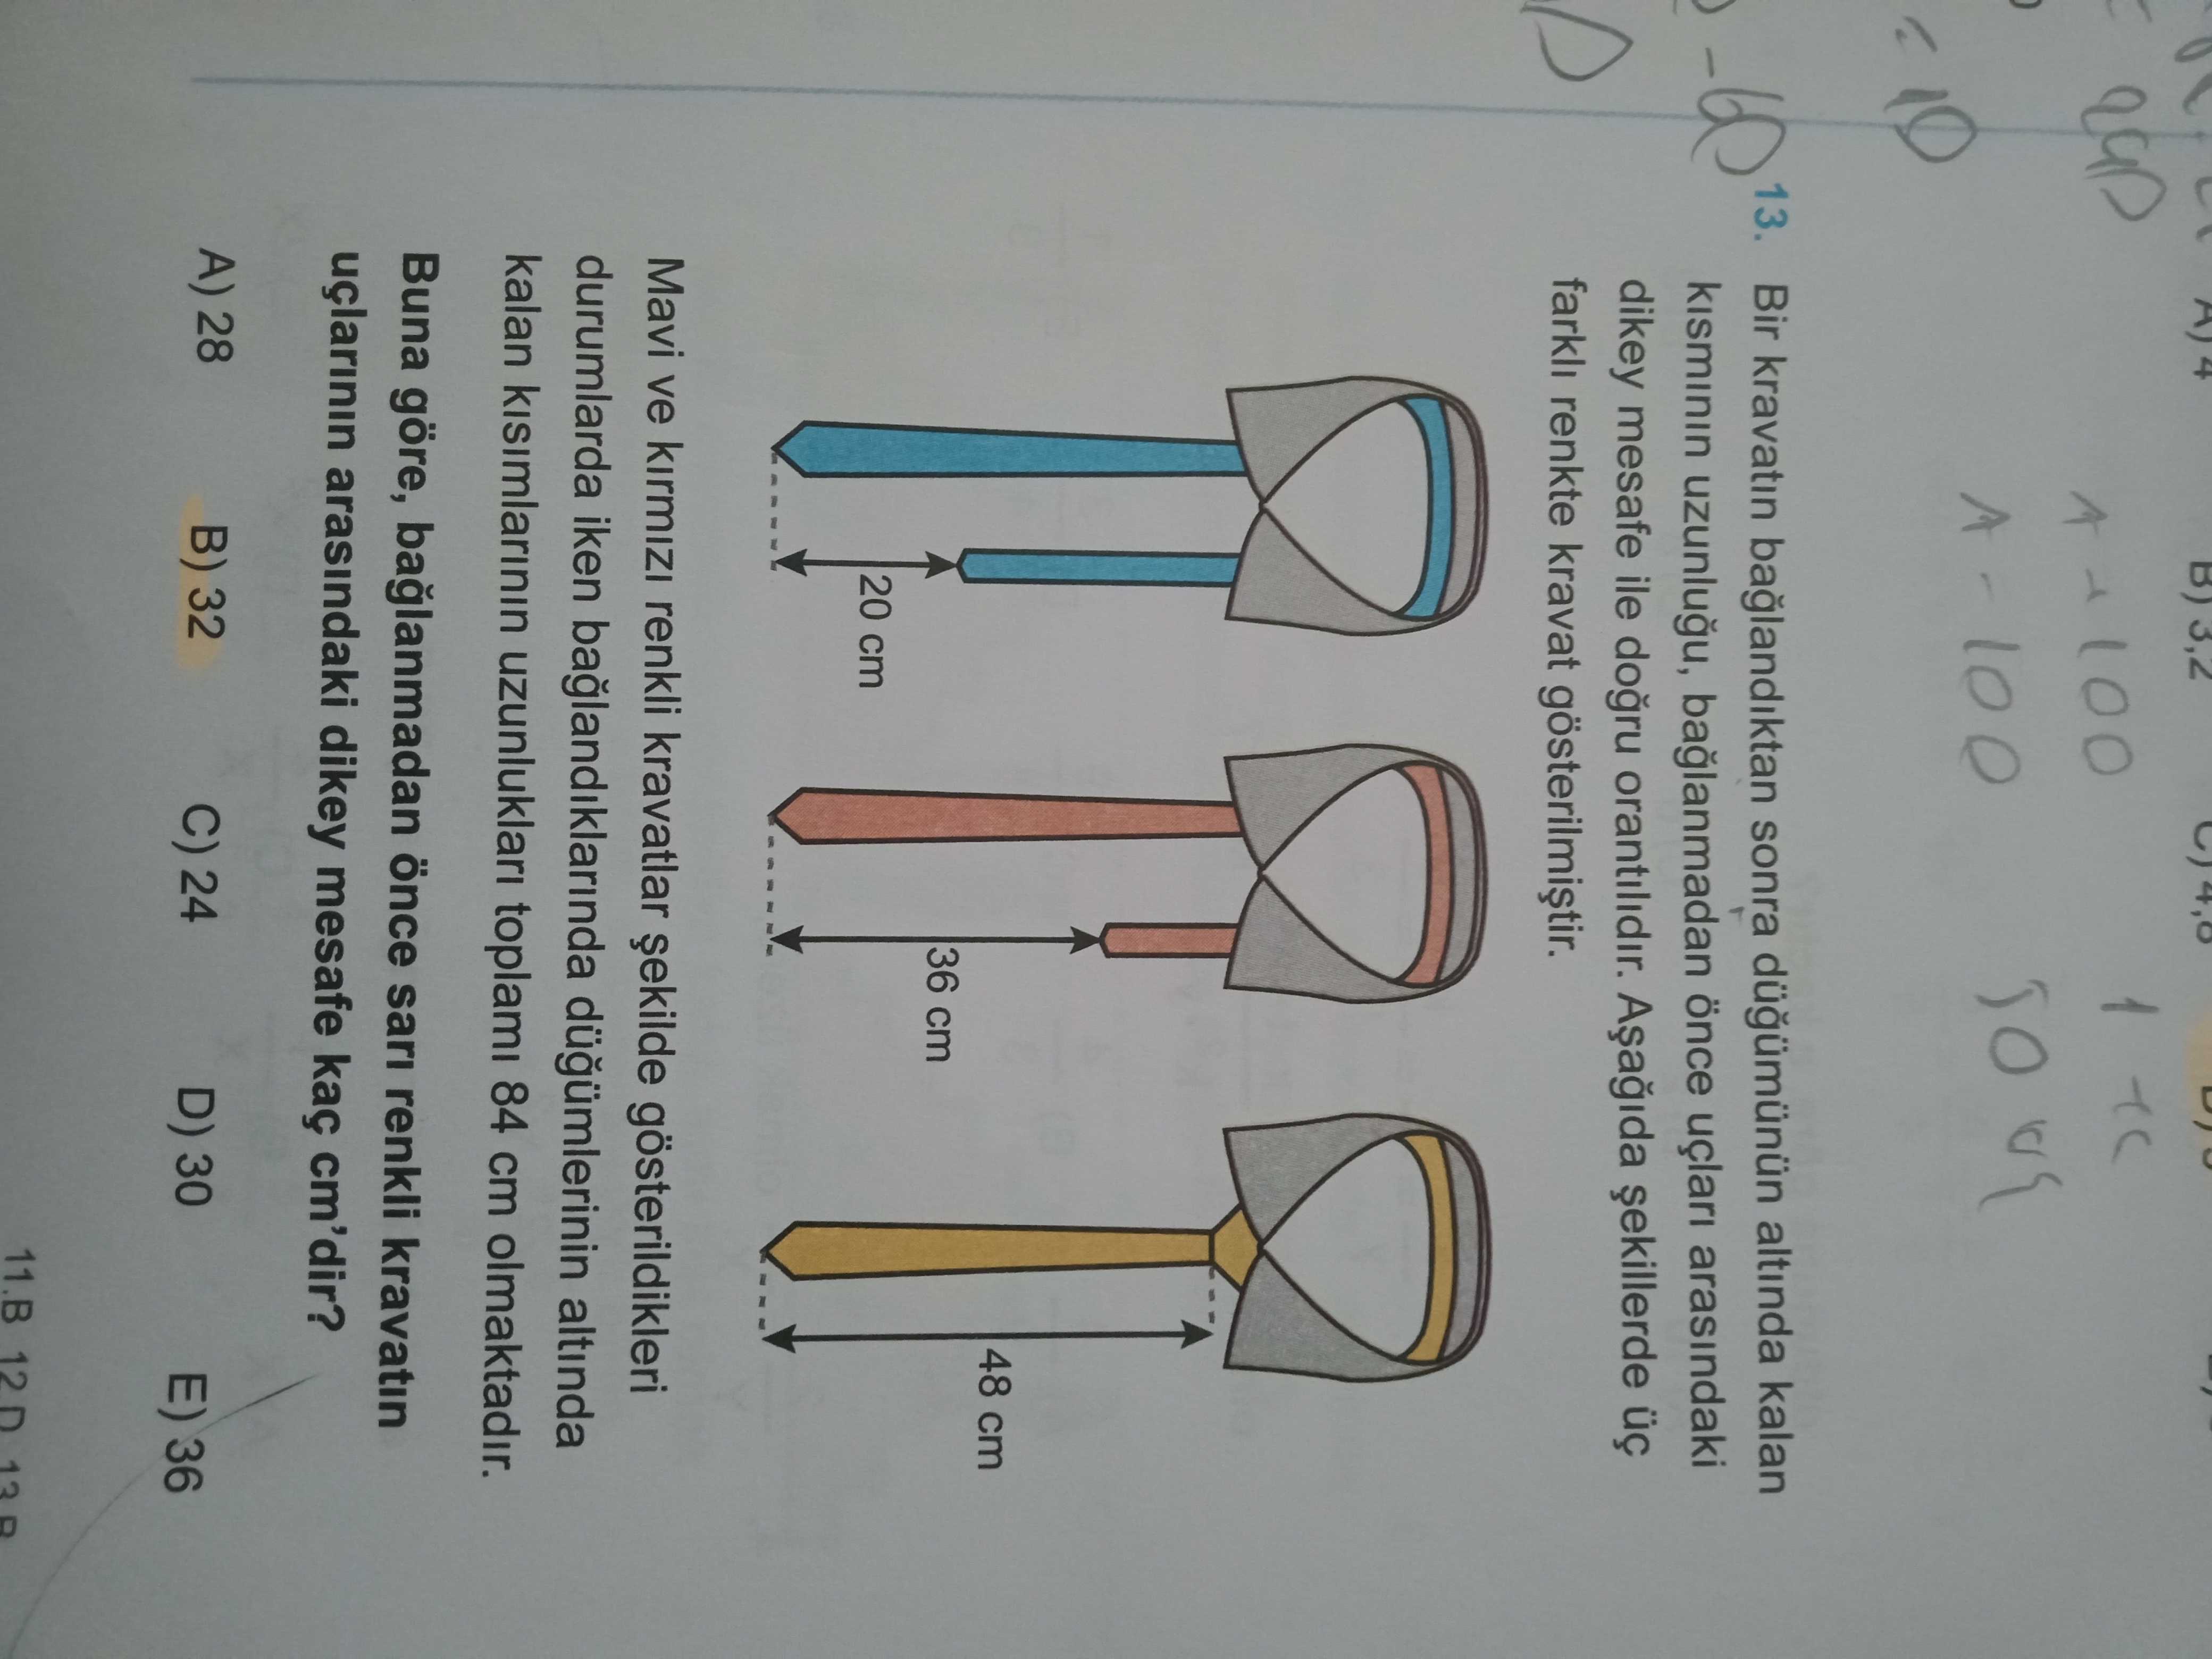 A) 4 B) 3,2 C) 4,8
= 10
- 60
A - 100
13. Bir kravatın bağlandıktan sonra düğümünün altında kalan
kısmının uzunluğu, bağlanmadan önce uçları arasındaki
dikey mesafe ile doğru orantılıdır. Aşağıda şekillerde üç
farklı renkte kravat gösterilmiştir.
20 cm
36 cm
48 cm
Mavi ve kırmızı renkli kravatlar şekilde gösterildikleri
durumlarda iken bağlandıklarında düğümlerinin altında
kalan kısımlarının uzunlukları toplamı 84 cm olmaktadır.
Buna göre, bağlanmadan önce sarı renkli kravatın
uçlarının arasındaki dikey mesafe kaç cm'dir?
A) 28 B) 32 C) 24 D) 30 E) 36
11.B 12.D 13.B